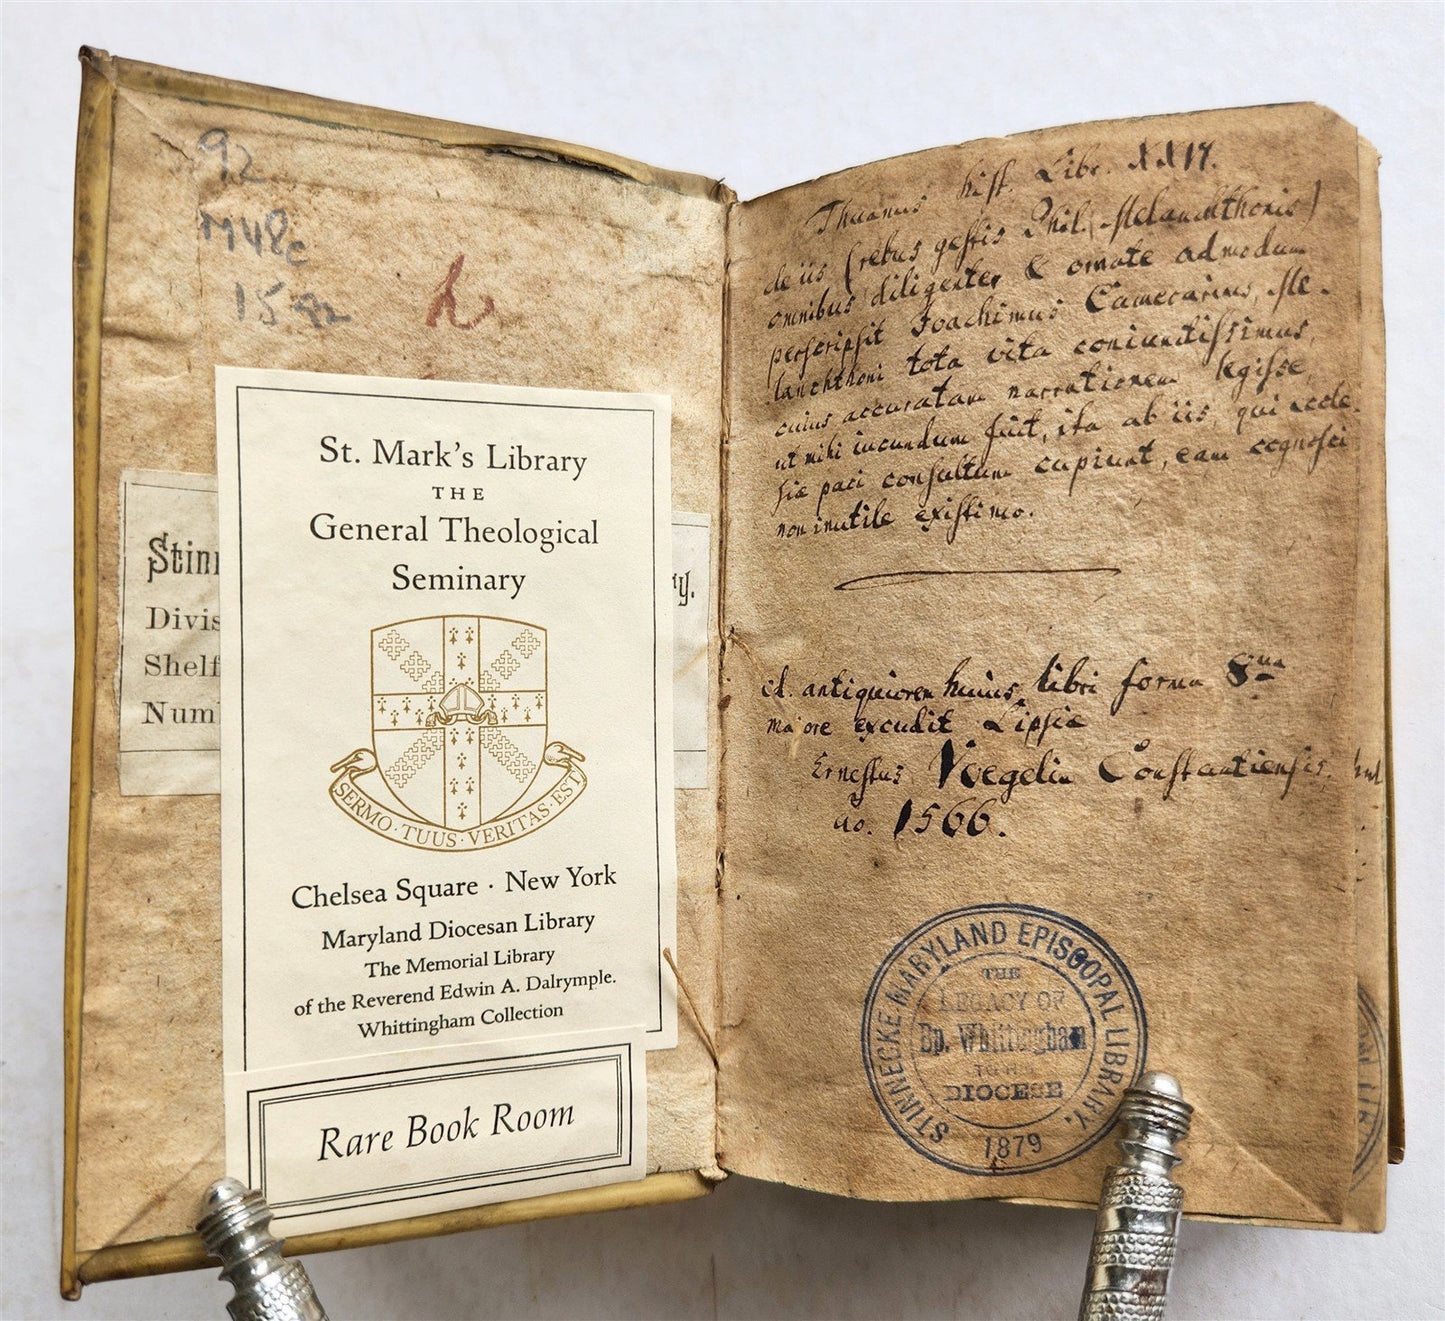 92
M48c
1592
h
Stin
Divis
Shelf
Num
y.
St. Mark's Library
THE
General Theological
Seminary
SERMO · TUUS · VERITAS · EST
Chelsea Square · New York
Maryland Diocesan Library
The Memorial Library
of the Reverend Edwin A. Dalrymple.
Whittingham Collection
Rare Book Room
Thuanus hist. Libr.
de iis (rebus gestis Phil. Melanchthonis)
omnibus diligenter & ornate admodum
perscripsit Joachimus Camerarius, Me-
lanchthoni tota vita coniunctissimus,
cuius accuratam narrationem legisse,
ut mihi iucundum fuit, ita ab iis, qui eccle-
siae paci consultum cupiunt, eam cognosci
non inutile existimo.
antiquiorem huius libri forma 8va
majore excudit Lipsiae
Ernestus Voegelin Constantiensis
ao. 1566.
STINNECKE MARYLAND EPISCOPAL LIBRARY.
THE
LEGACY OF
Bp. Whittingham
TO THE
DIOCESE
1879